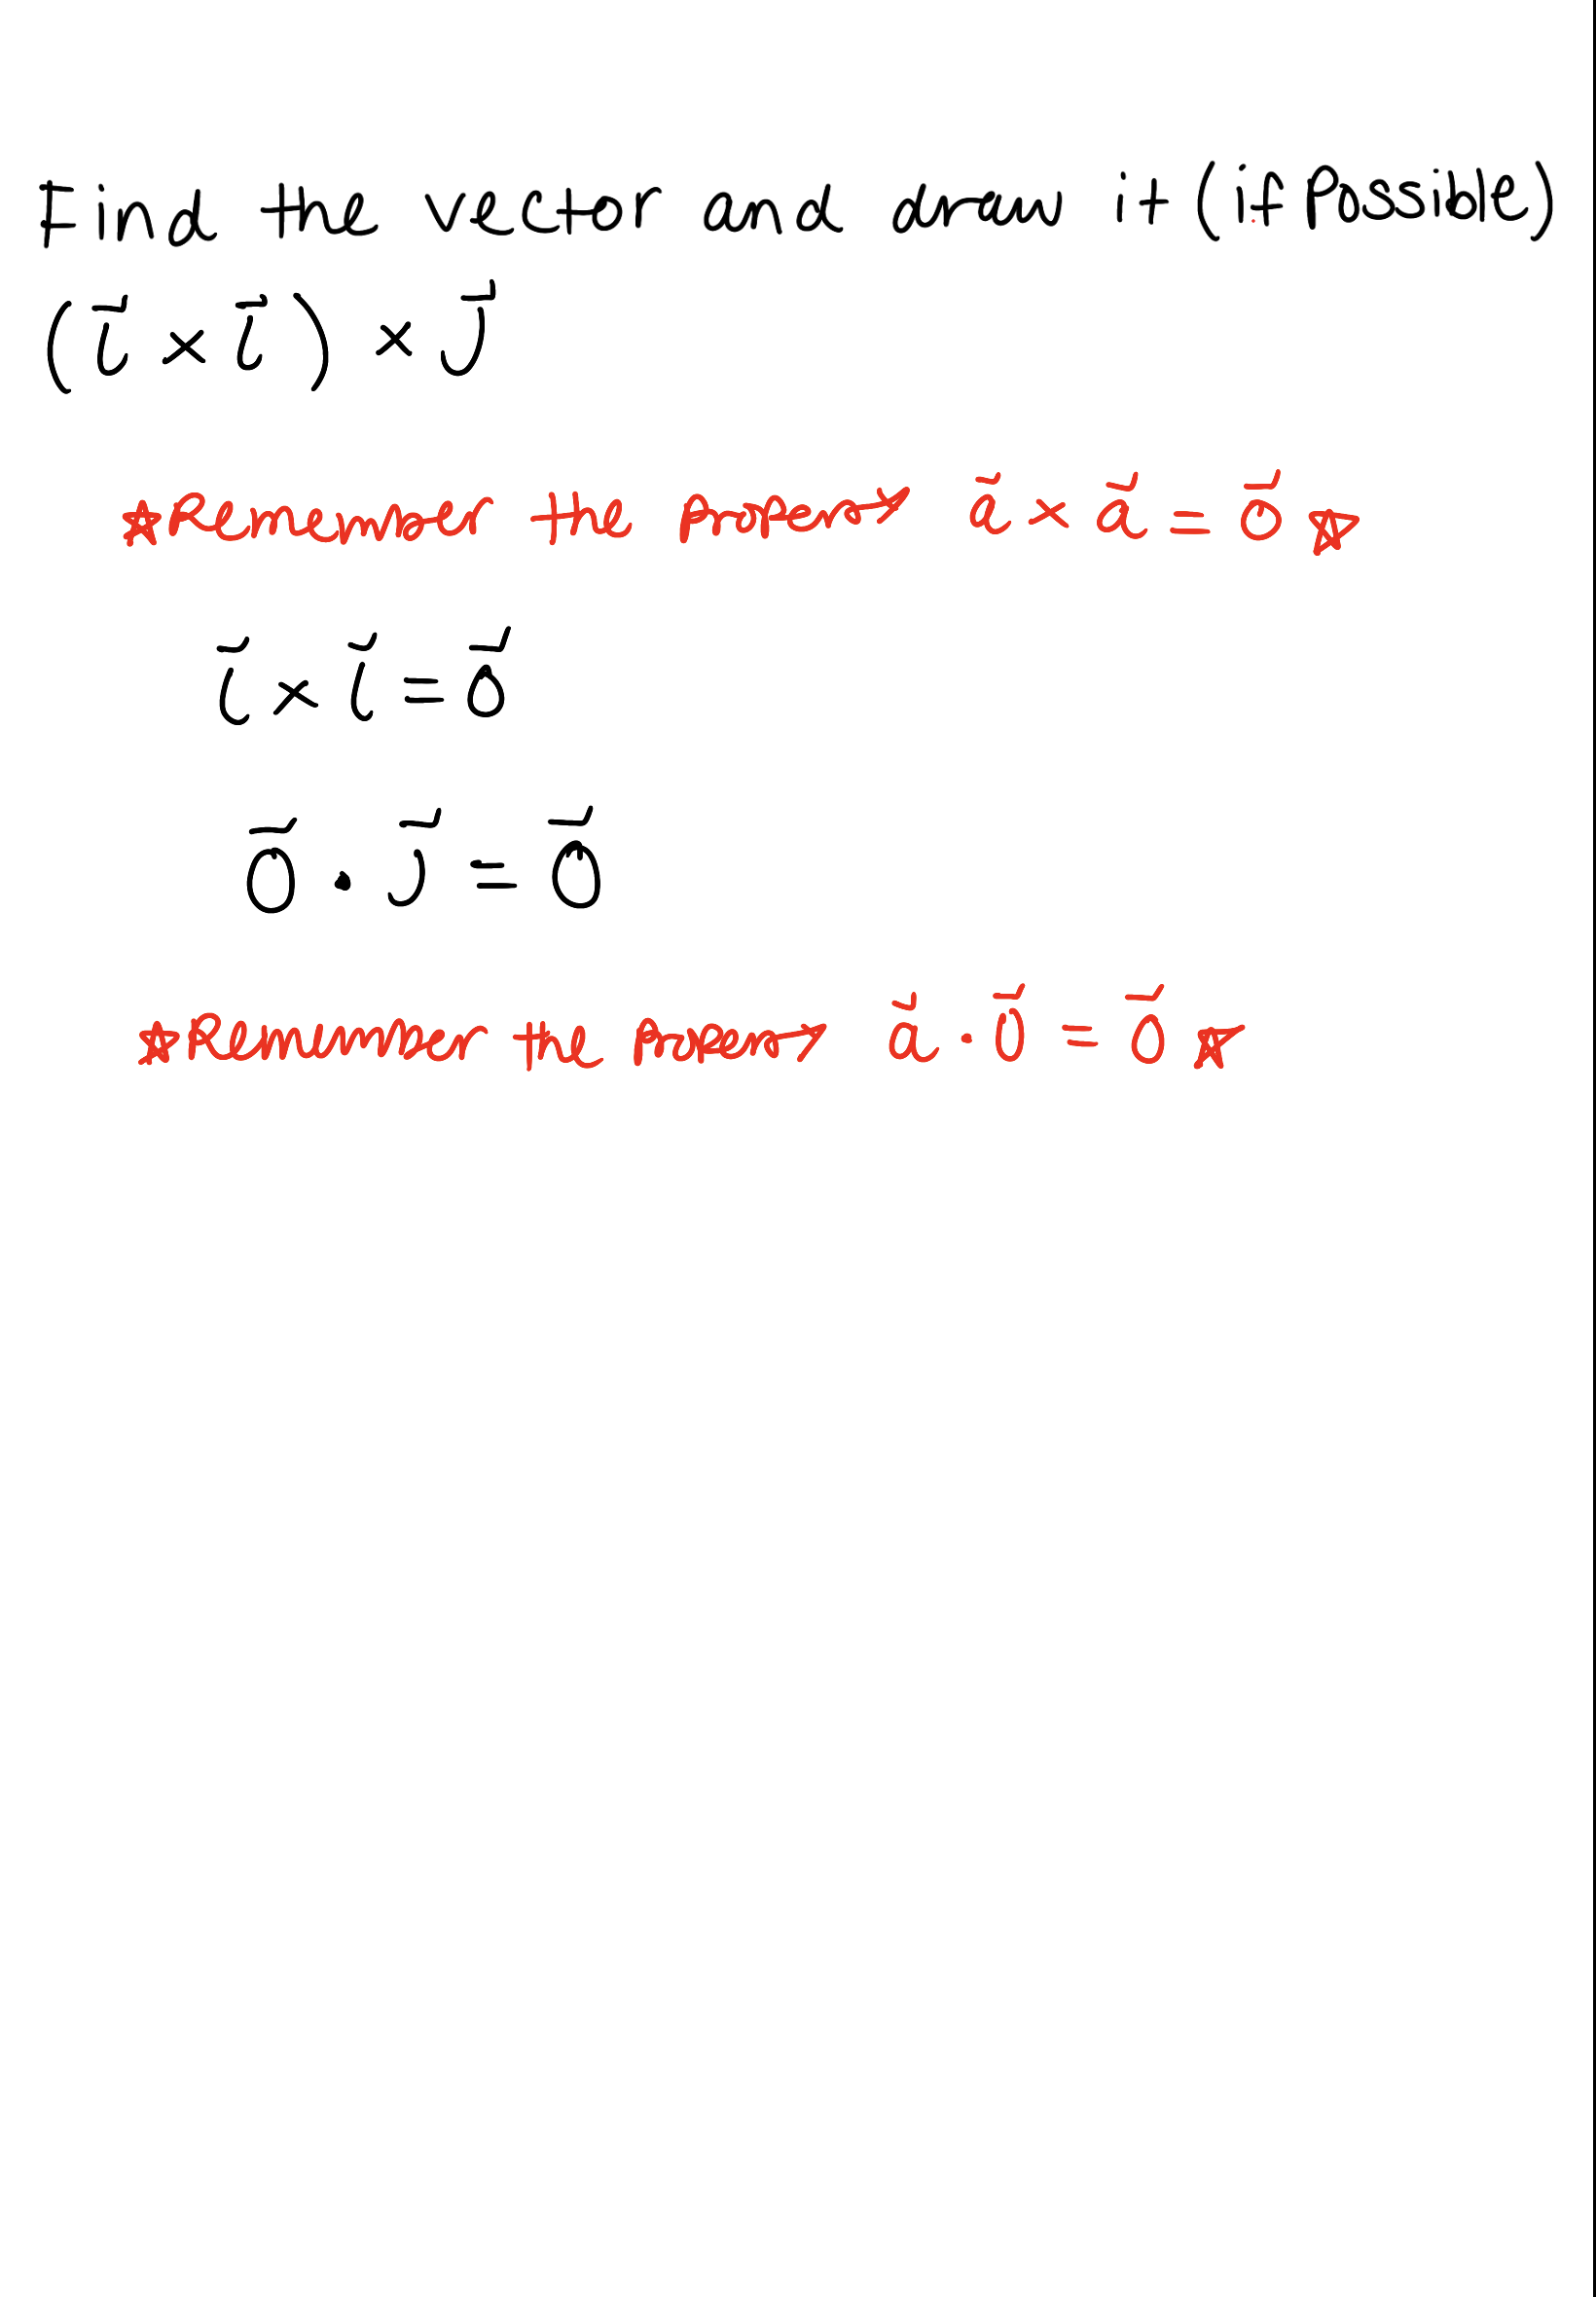 Find the vector and draw it (if Possible)
(i⃗ × i⃗) × j⃗
☆Remember the property a⃗ × a⃗ = 0⃗ ☆
i⃗ × i⃗ = 0⃗
0⃗ · j⃗ = 0⃗
☆Remember the property a⃗ · 0⃗ = 0⃗ ☆